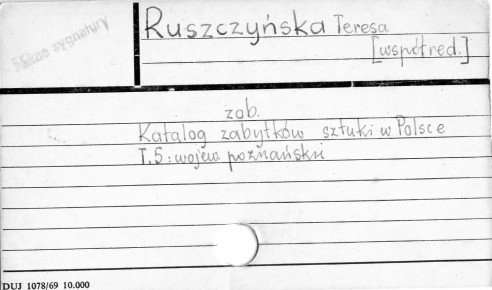 Różne sygnatury
Ruszczyńska Teresa
[współred.]
zob.
Katalog zabytków sztuki w Polsce
T.5: wojew. poznański
DUJ 1078/69 10.000